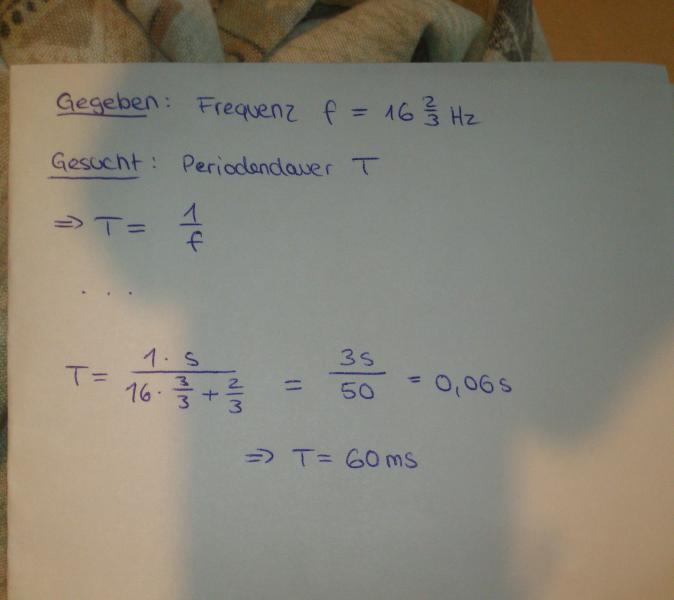 Gegeben: Frequenz f = 16 2/3 Hz
Gesucht: Periodendauer T
⇒ T = 1/f
. . .
T = (1 · s)/(16 · 3/3 + 2/3) = 3s/50 = 0,06s
⇒ T = 60ms